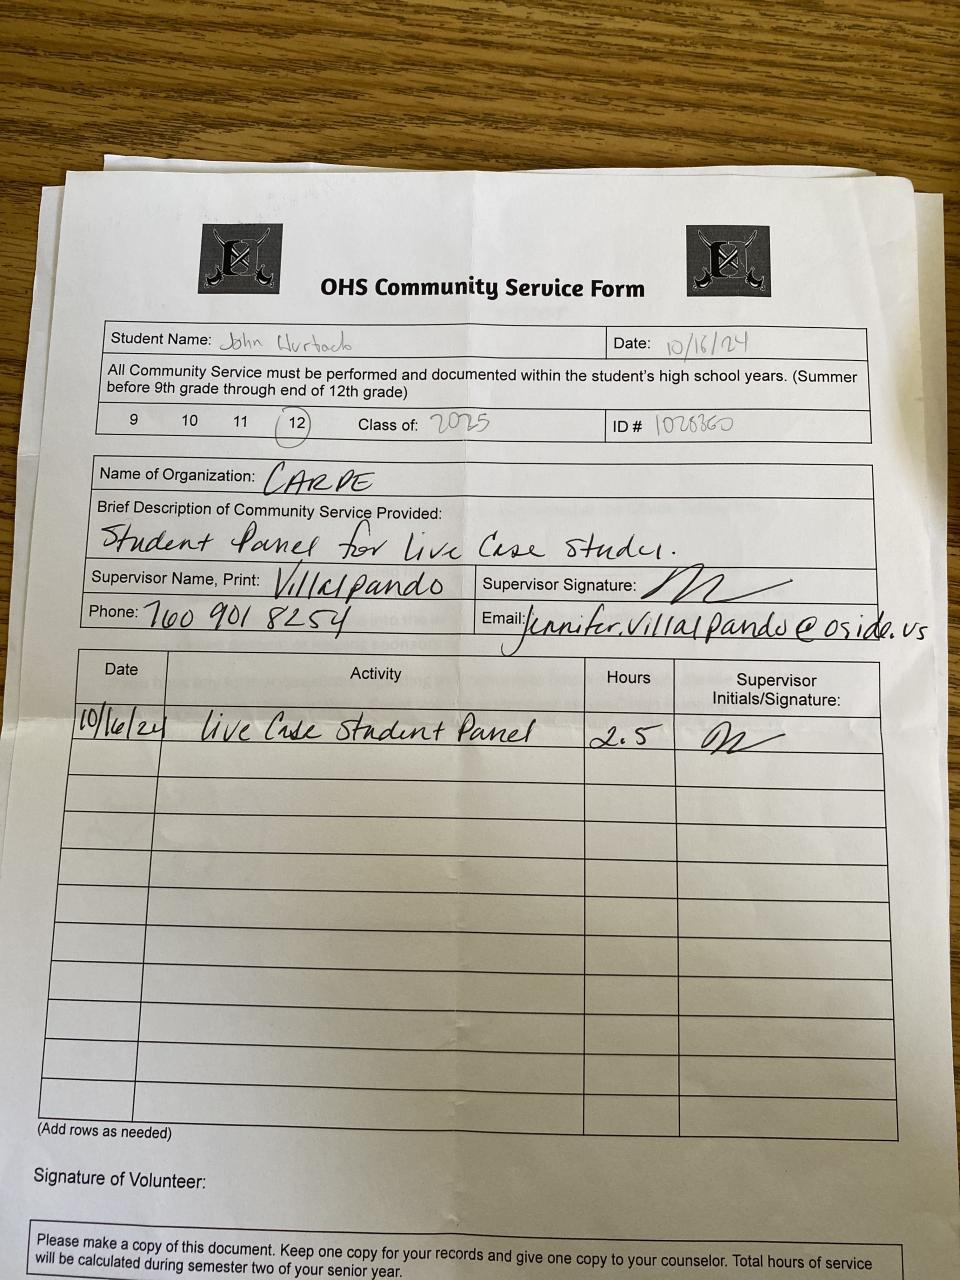 OHS Community Service Form
Student Name: John Hurtado
Date: 10/16/24
All Community Service must be performed and documented within the student's high school years. (Summer
before 9th grade through end of 12th grade)
9 10 11 12 Class of: 2025 ID # 1028360
Name of Organization: CARPE
Brief Description of Community Service Provided:
Student Panel for live Case Studies.
Supervisor Name, Print: Villalpando
Supervisor Signature:
Phone: 760 901 8254
Email: jennifer.villalpando@oside.us
Date Activity Hours Supervisor
Initials/Signature:
10/16/24 live Case Student Panel 2.5
(Add rows as needed)
Signature of Volunteer:
Please make a copy of this document. Keep one copy for your records and give one copy to your counselor. Total hours of service
will be calculated during semester two of your senior year.